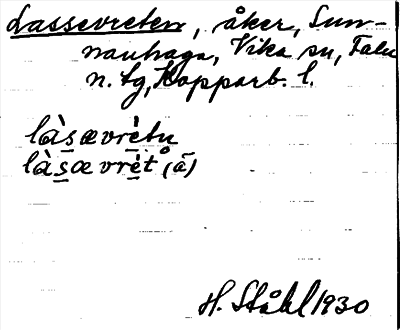 Lassevreten, åker, Sun-
nanhaga, Vika sn, Falu
n. tg, Kopparb. l.
làsævrètu
làsævrèt (å̄)
H. Ståhl 1930